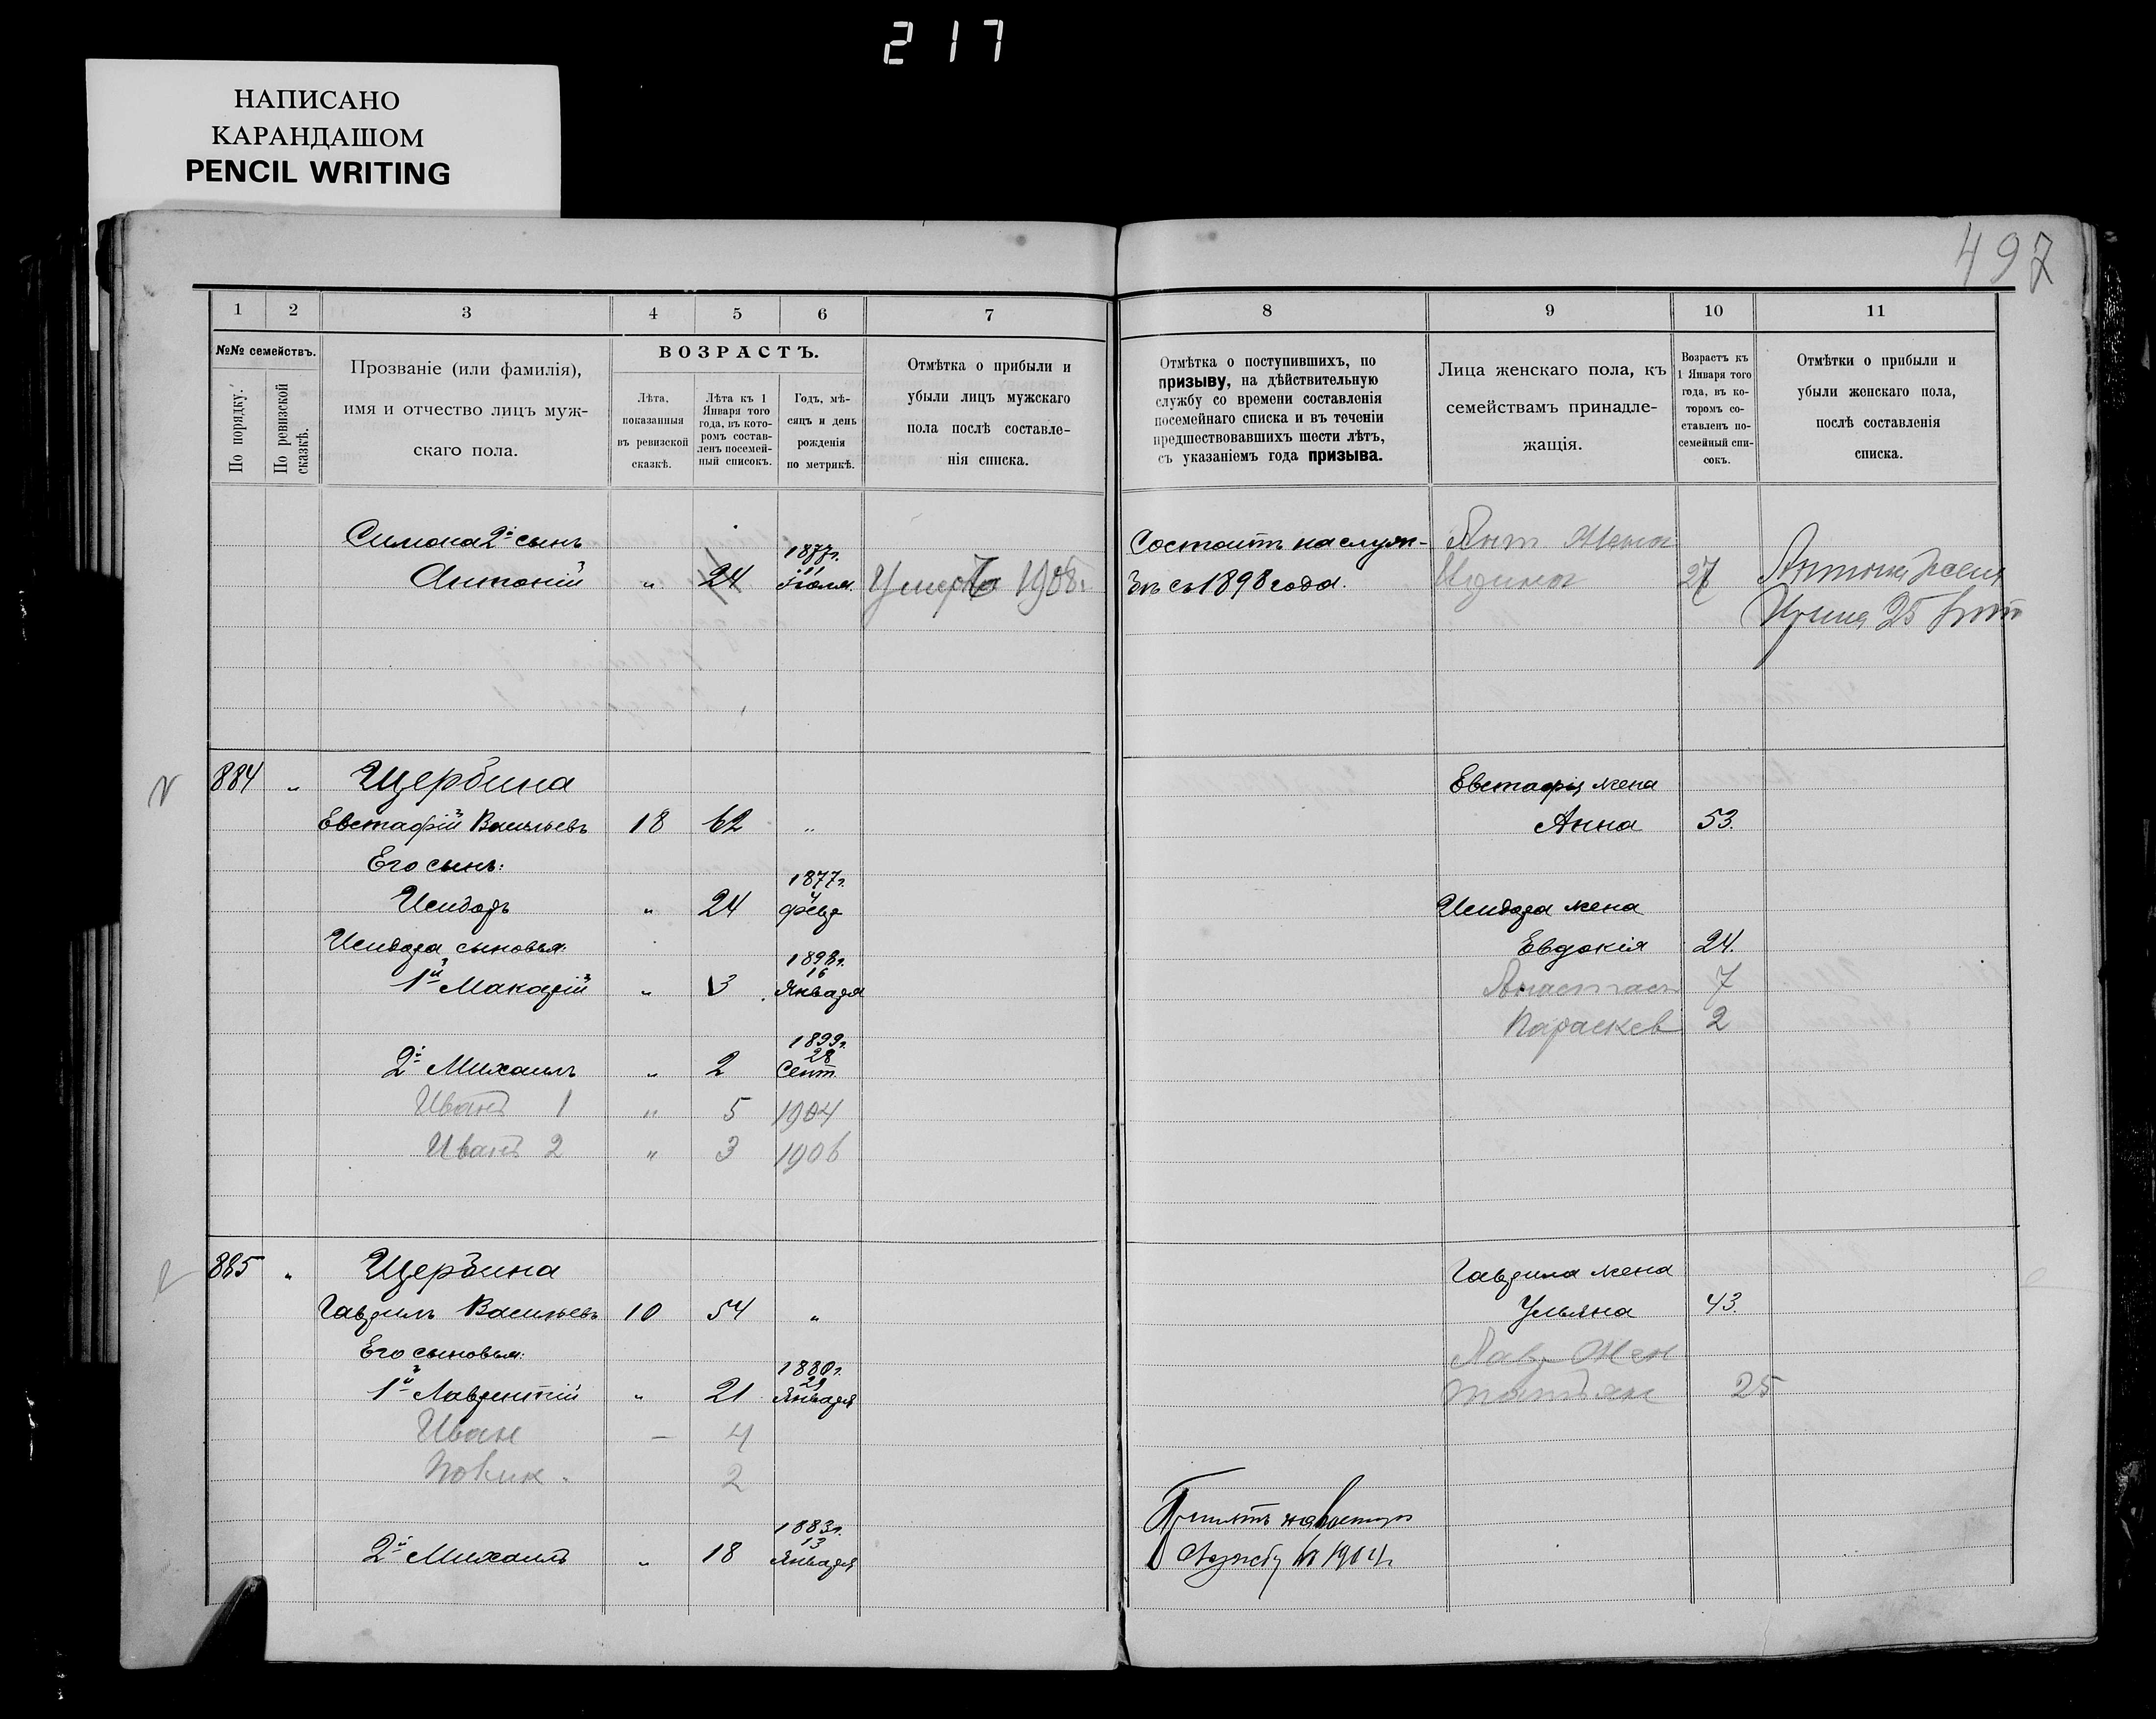 217
НАПИСАНО
КАРАНДАШОМ
PENCIL WRITING
497
1 2 3 4 5 6 7 8 9 10 11
№№ семействъ.
По порядку.
По ревизской сказкѣ.
Прозваніе (или фамилія),
имя и отчество лицъ муж-
скаго пола.
ВОЗРАСТЪ.
Лѣта,
показанныя
въ ревизской
сказкѣ.
Лѣта къ 1
Января того
года, въ кото-
ромъ состав-
ленъ посемей-
ный списокъ.
Годъ, мѣ-
сяцъ и день
рожденія
по метрикѣ.
Отмѣтка о прибыли и
убыли лицъ мужскаго
пола послѣ составле-
нія списка.
Отмѣтка о поступившихъ, по
призыву, на дѣйствительную
службу со времени составленія
посемейнаго списка и въ теченіи
предшествовавшихъ шести лѣтъ,
съ указаніемъ года призыва.
Лица женскаго пола, къ
семействамъ принадле-
жащія.
Возрастъ къ
1 Января того
года, въ ко-
торомъ со-
ставленъ по-
семейный спи-
сокъ.
Отмѣтки о прибыли и
убыли женскаго пола,
послѣ составленія
списка.
Симона 2й сынъ Состоитъ на служ- Ант Жена
1877г.
Антоній " 24 Іюля. Умеръ 1908г. бѣ съ 1898 года. 27 Антона жена
Ирина 25
884 " Щербина Евстафія жена
Евстафій Васильевъ 18 62 " Анна 53.
Его сынъ:
1877г.
4
Исидоръ " 24 Февр Исидора жена
Исидора сыновья: Евдокія 24.
1898г.
16
1й Макарій " 3 Января Анастас 7
Параскев 2
1899г.
28
2й Михаилъ " 2 Сент.
Иванъ 1 " 5 1904
Иванъ 2 " 3 1906
885 " Щербина Гаврила жена
Гаврилъ Васильевъ 10 54 " Ульяна 43.
Его сыновья: Лавр Жен
1880г.
29
1й Лаврентій " 21 Января Татьян 25
Иван — 4
2
1883г.
13
2й Михаилъ " 18 Января
Принятъ на военную
службу въ 1904г.